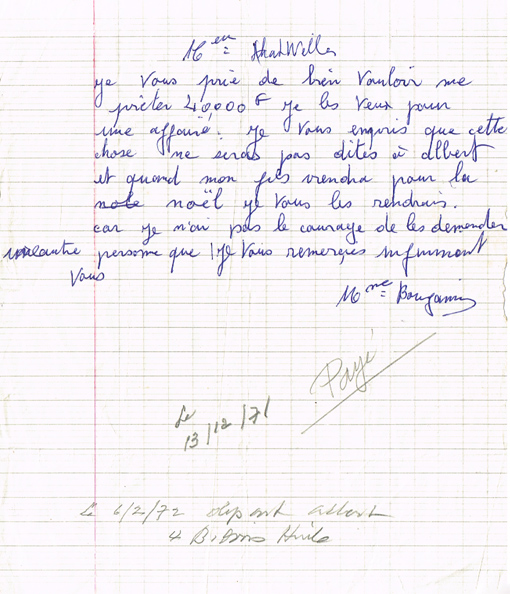 Meu =
ye vous prie de bien vouloir me
prêter 40,000 F ye les veux pour
une affairé. ye vous enpris que cette
chose ne seras pas dites à albert
et quand mon fis viendra pour la
note noël ye vous les rendrais.
car ye n'ai pas le courage de les demender
uneautre persome que ye vous remerçies infiniment
Vous
Mme =
Payé
Le
13/12/71
Le 6/2/72 albert
4